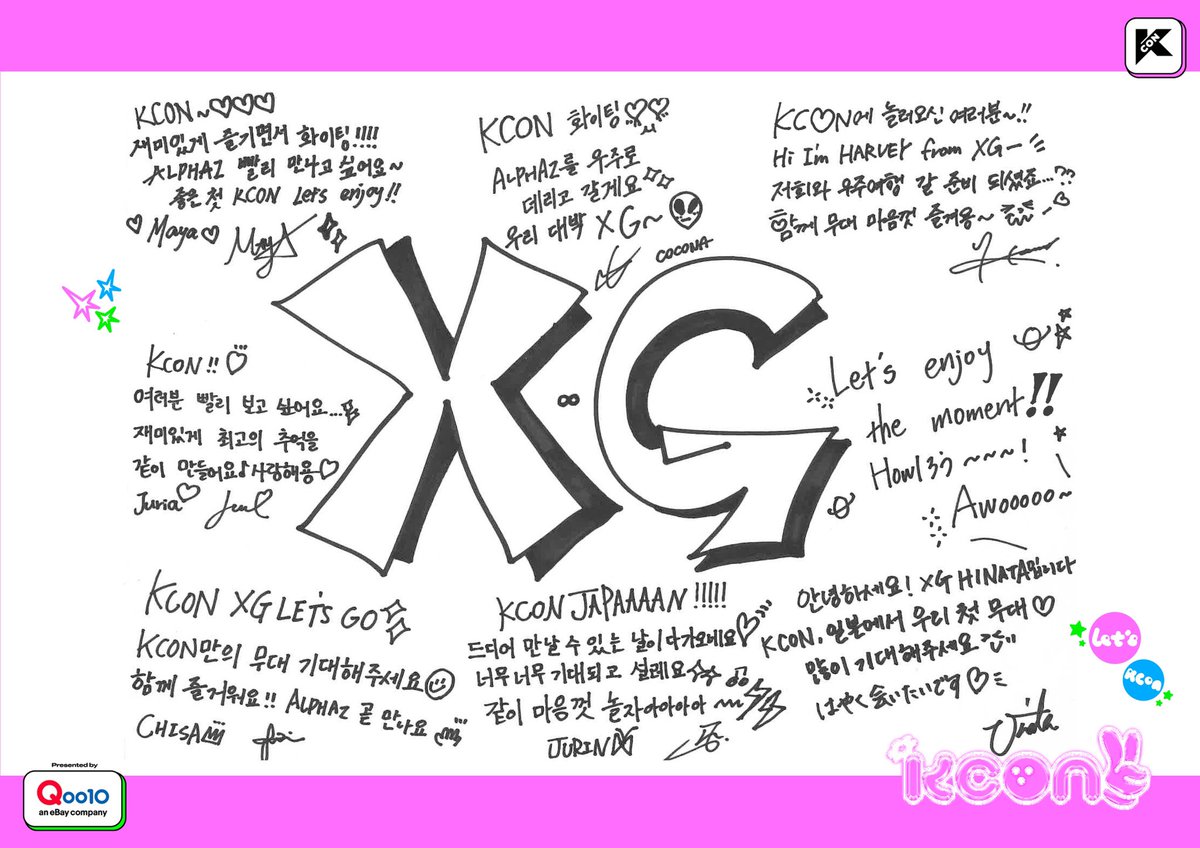 KCON
KCON~♡♡♡
재미있게 즐기면서 화이팅!!!!
ALPHAZ 빨리 만나고 싶어요~
좋은 첫 KCON Let's enjoy!!
♡Maya♡
KCON 화이팅♡♡
ALPHAZ를 우주로
데리고 갈게요
우리 대박 XG~
COCONA
KCON에 놀러오신 여러분~!!
Hi I'm HARVEY from XG—
저희와 우주여행 갈 준비 되셨죠...??
함께 무대 마음껏 즐겨용~
XG
KCON!!♡
여러분 빨리 보고 싶어요...
재미있게 최고의 추억을
같이 만들어요♪사랑해용♡
Juria♡
Let's enjoy
the moment!!
Howl
~~~!
Awooooo~
KCON XG LET'S GO
KCON만의 무대 기대해주세요
함께 즐거워요!! ALPHAZ 곧 만나요
CHISA
KCON JAPAAAAN!!!!!
드디어 만날 수 있는 날이 다가오네요♡
너무너무 기대되고 설레요
같이 마음껏 놀자아아아아~
JURIN
안녕하세요! XG HINATA입니다
KCON, 일본에서 우리 첫 무대♡
많이 기대해주세요
はやく会いたいです♡
Let's
KCON
KCON
Presented by
Qoo10
an eBay company